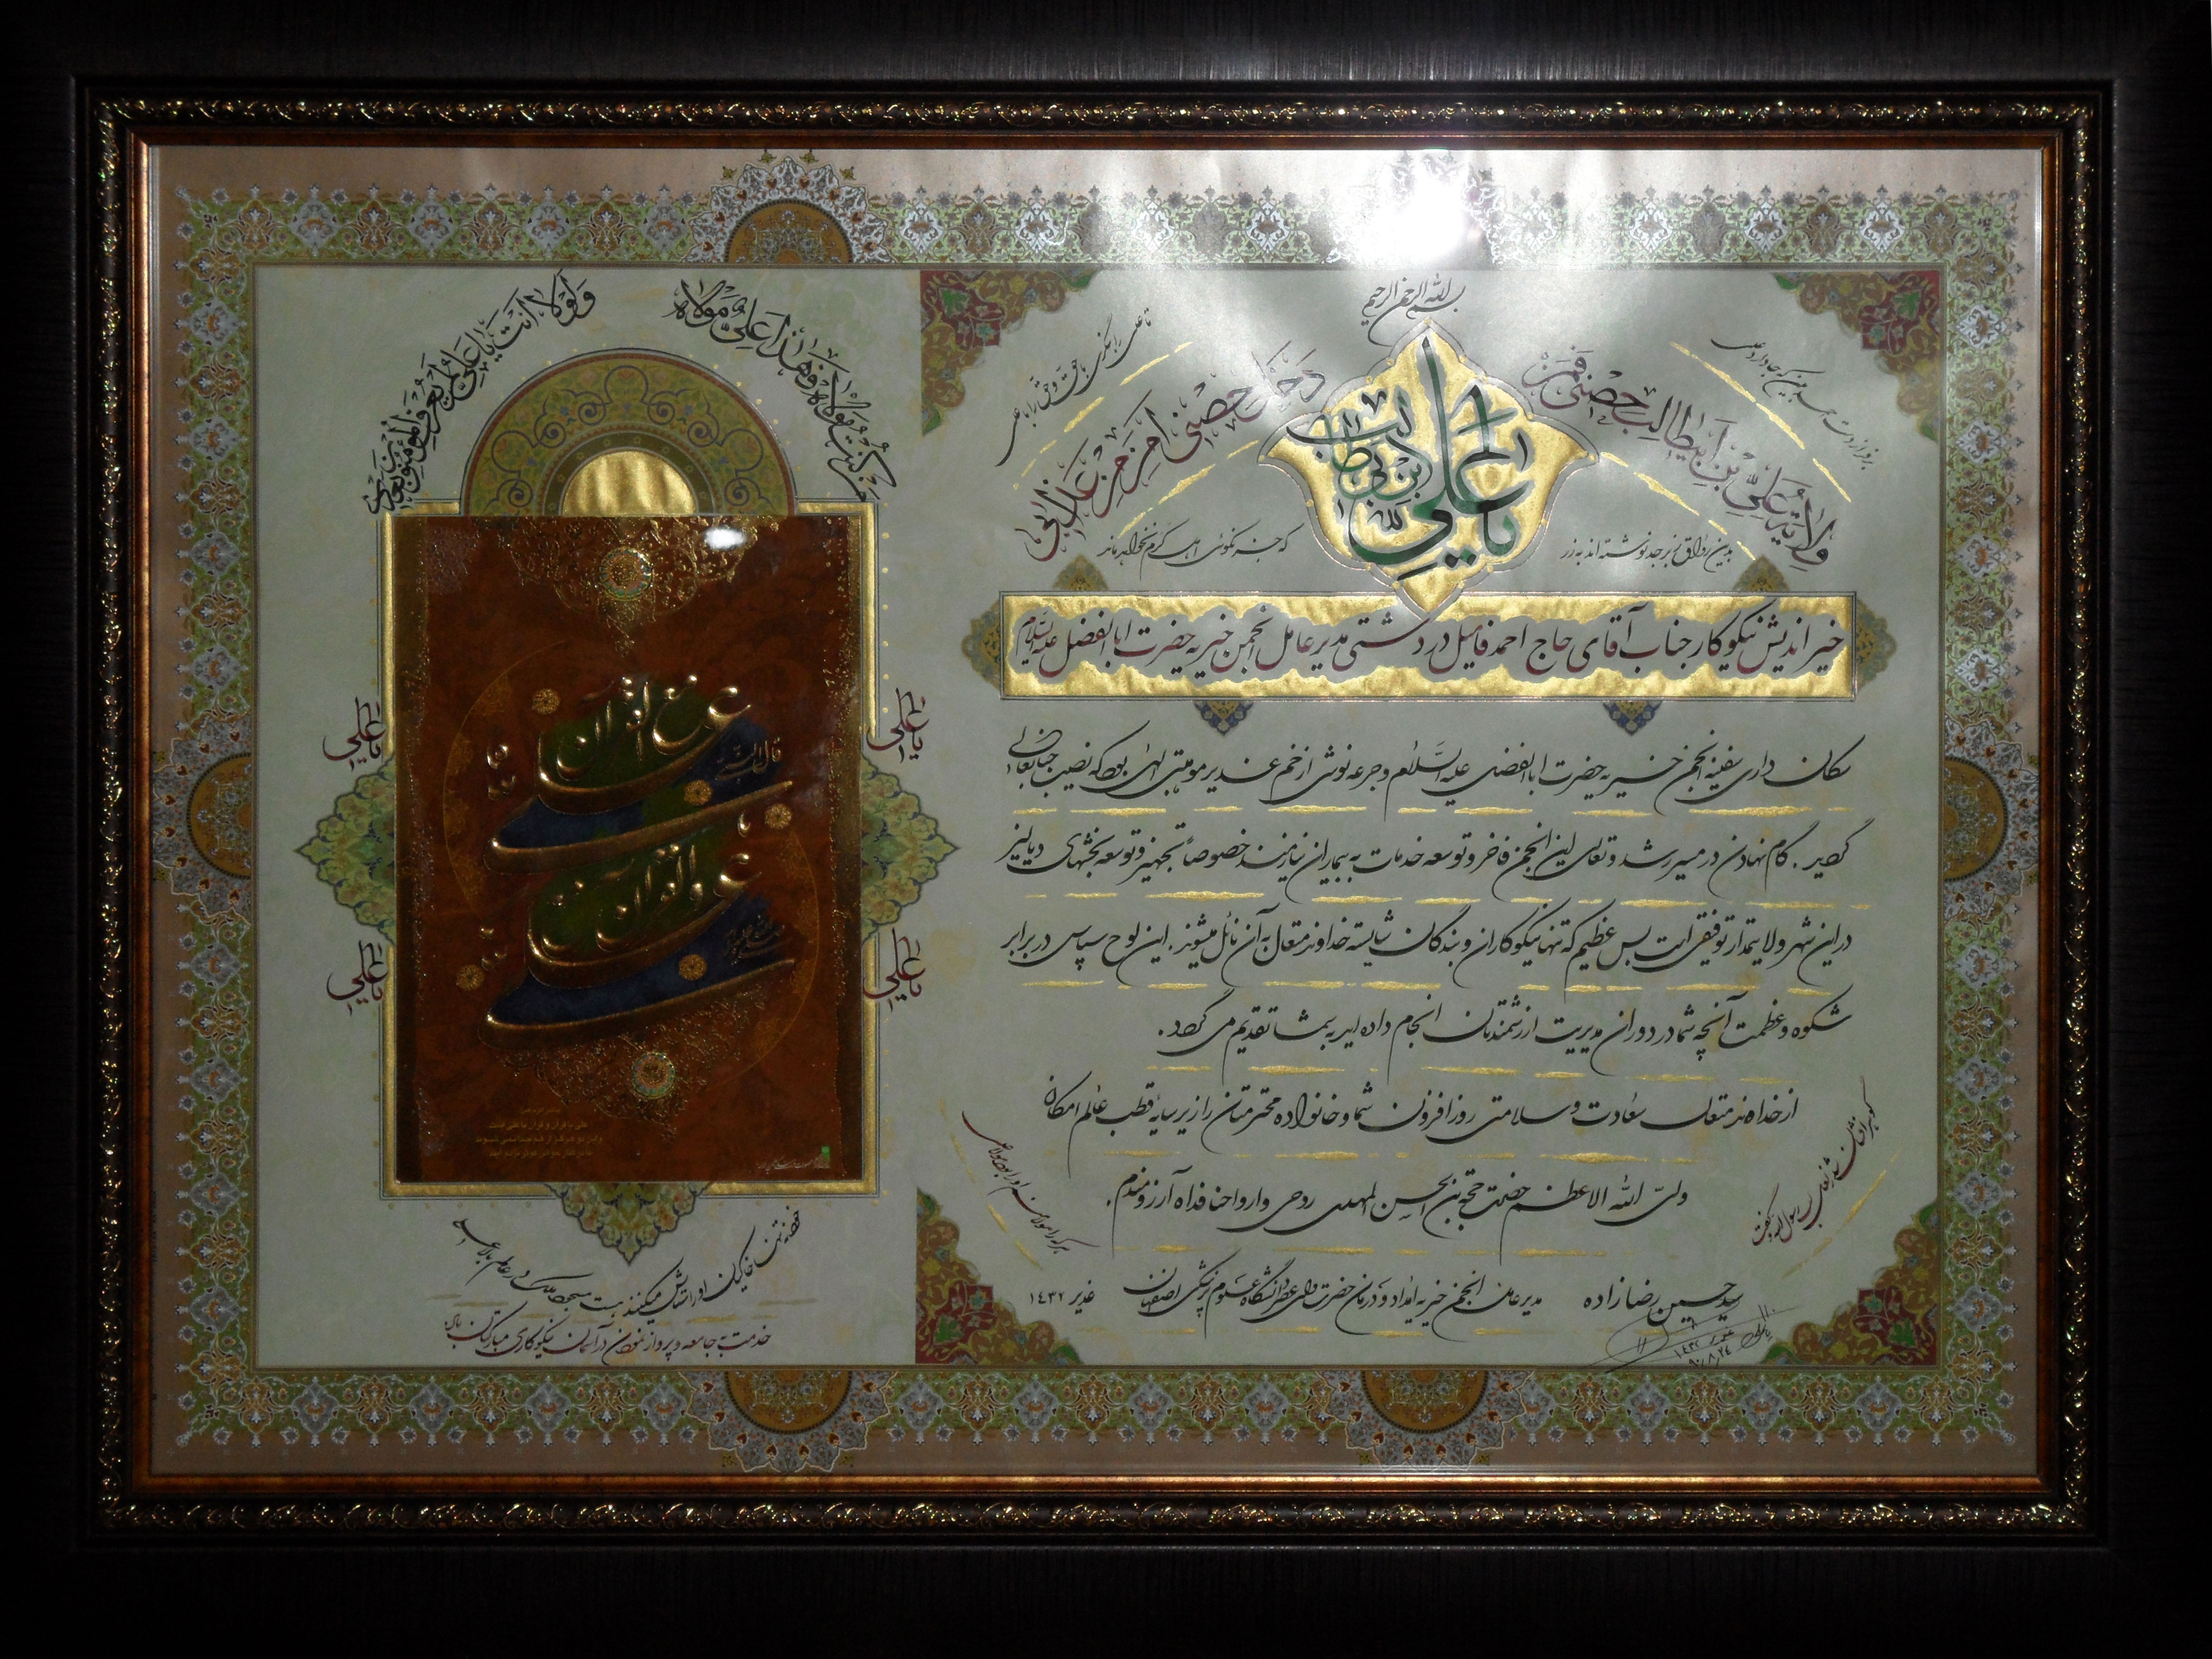 بسم الله الرحمن الرحیم
یا علی بن ابی طالب
ولایة علی بن ابیطالب حصنی فمن
دخل حصنی امن من عذابی
تا علی را بنگری با حق و حق را با علی
بدین رواق زبرجد نوشته اند به زر
که جز نکوئی اهل کرم نخواهد ماند
خیراندیش نیکوکار جناب آقای حاج احمد فامیل دردشتی مدیر عامل انجمن خیریه حضرت ابوالفضل علیه السلام
سکان داری سفینه انجمن خیریه حضرت ابوالفضل علیه السلام و جرعه نوشی از خم غدیر موهبتی الهی بود که نصیب جنابعالی
گردید. گام نهادن در مسیر رشد و تعالی این انجمن فاخر و توسعه خدمات به بیماران نیازمند خصوصاً تجهیز و توسعه بخشهای دیالیز
در این شهر ولایتمدار توفیقی است بس عظیم که تنها نیکوکاران و بندگان شایسته خداوند متعال به آن نائل میشوند. این لوح سپاس در برابر
شکوه و عظمت آنچه شما در دوران مدیریت ارزشمندتان انجام داده اید به شما تقدیم می گردد.
از خداوند متعال سعادت و سلامتی روزافزون شما و خانواده محترمتان را زیر سایه قطب عالم امکان
ولی الله الاعظم حضرت حجة بن الحسن المهدی روحی و ارواحنا فداه آرزومندم.
سید حسین رضازاده
مدیر عامل انجمن خیریه امداد و درمان حضرت ولی عصر دانشگاه علوم پزشکی اصفهان
غدیر ۱۴۳۲
غدیر ۱۴۳۲
۹۰/۸/۲۴
من کنت مولاه فهذا علی مولاه
ولولا انت یا علی لم یعرف المؤمنون بعدی
یا علی
یا علی
یا علی
یا علی
قال النبی
علی مع القرآن
و القرآن مع علی
خدمت به جامعه و پرواز نمودن در آسمان نیکوکاری مبارکتان باد